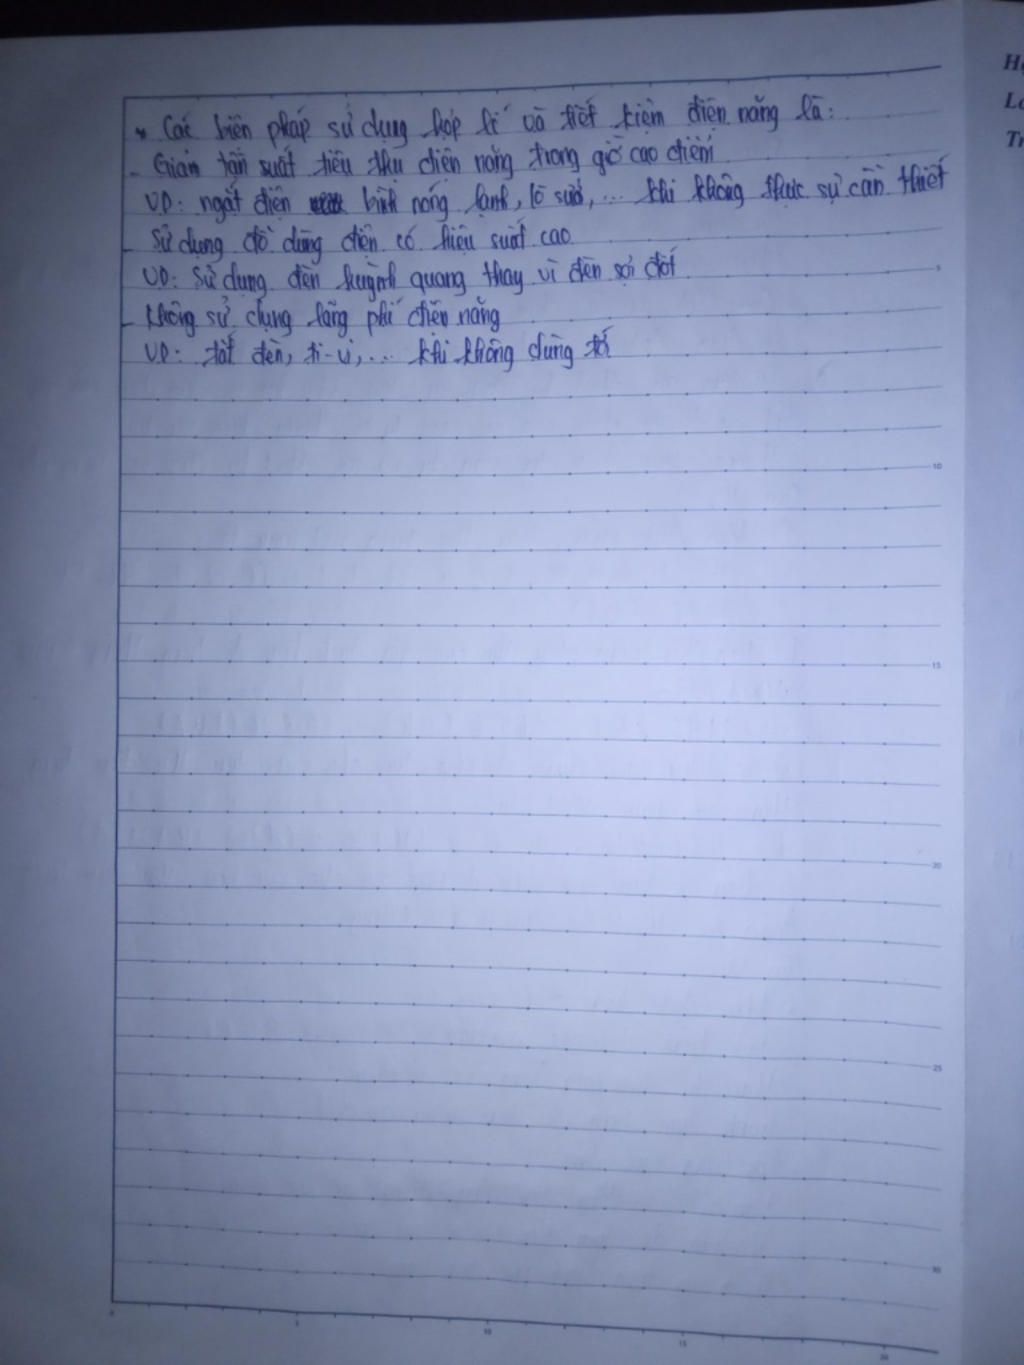 * Các biện pháp sử dụng hợp lí và tiết kiệm điện năng là:
- Giảm tần suất tiêu thụ điện năng trong giờ cao điểm
VD: ngắt điện bình nóng lạnh, lò sưởi, ... khi không thực sự cần thiết
- Sử dụng đồ dùng điện có hiệu suất cao
VD: Sử dụng đèn huỳnh quang thay vì đèn sợi đốt
- Không sử dụng lãng phí điện năng
VD: tắt đèn, ti-vi,... khi không dùng tới
5
10
15
20
25
30
0 5 10 15 20